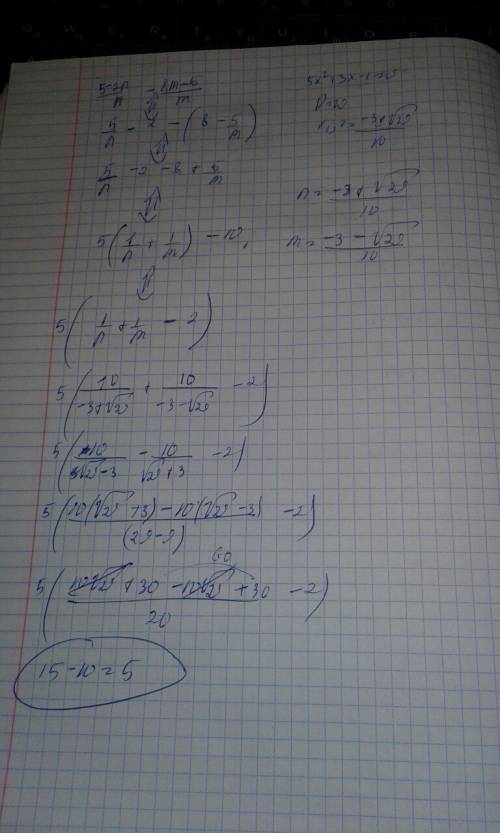 \frac{5-2n}{n} - \frac{8m-5}{m}
\frac{5}{n} - 2 - (8 - \frac{5}{m})
\frac{5}{n} - 2 - 8 + \frac{5}{m}
5(\frac{1}{n} + \frac{1}{m}) - 10,
5(\frac{1}{n} + \frac{1}{m} - 2)
5(\frac{10}{-3+\sqrt{29}} + \frac{10}{-3-\sqrt{29}} - 2)
5(\frac{10}{\sqrt{29}-3} - \frac{10}{\sqrt{29}+3} - 2)
5(\frac{10(\sqrt{29}+3)-10(\sqrt{29}-3)}{(29-9)} - 2)
60
5(\frac{10\sqrt{29}+30-10\sqrt{29}+30}{20} - 2)
15-10=5
5x²+3x-1=0
D=29
x_{1,2}=\frac{-3±\sqrt{29}}{10}
n=\frac{-3+\sqrt{29}}{10}
m=\frac{-3-\sqrt{29}}{10}